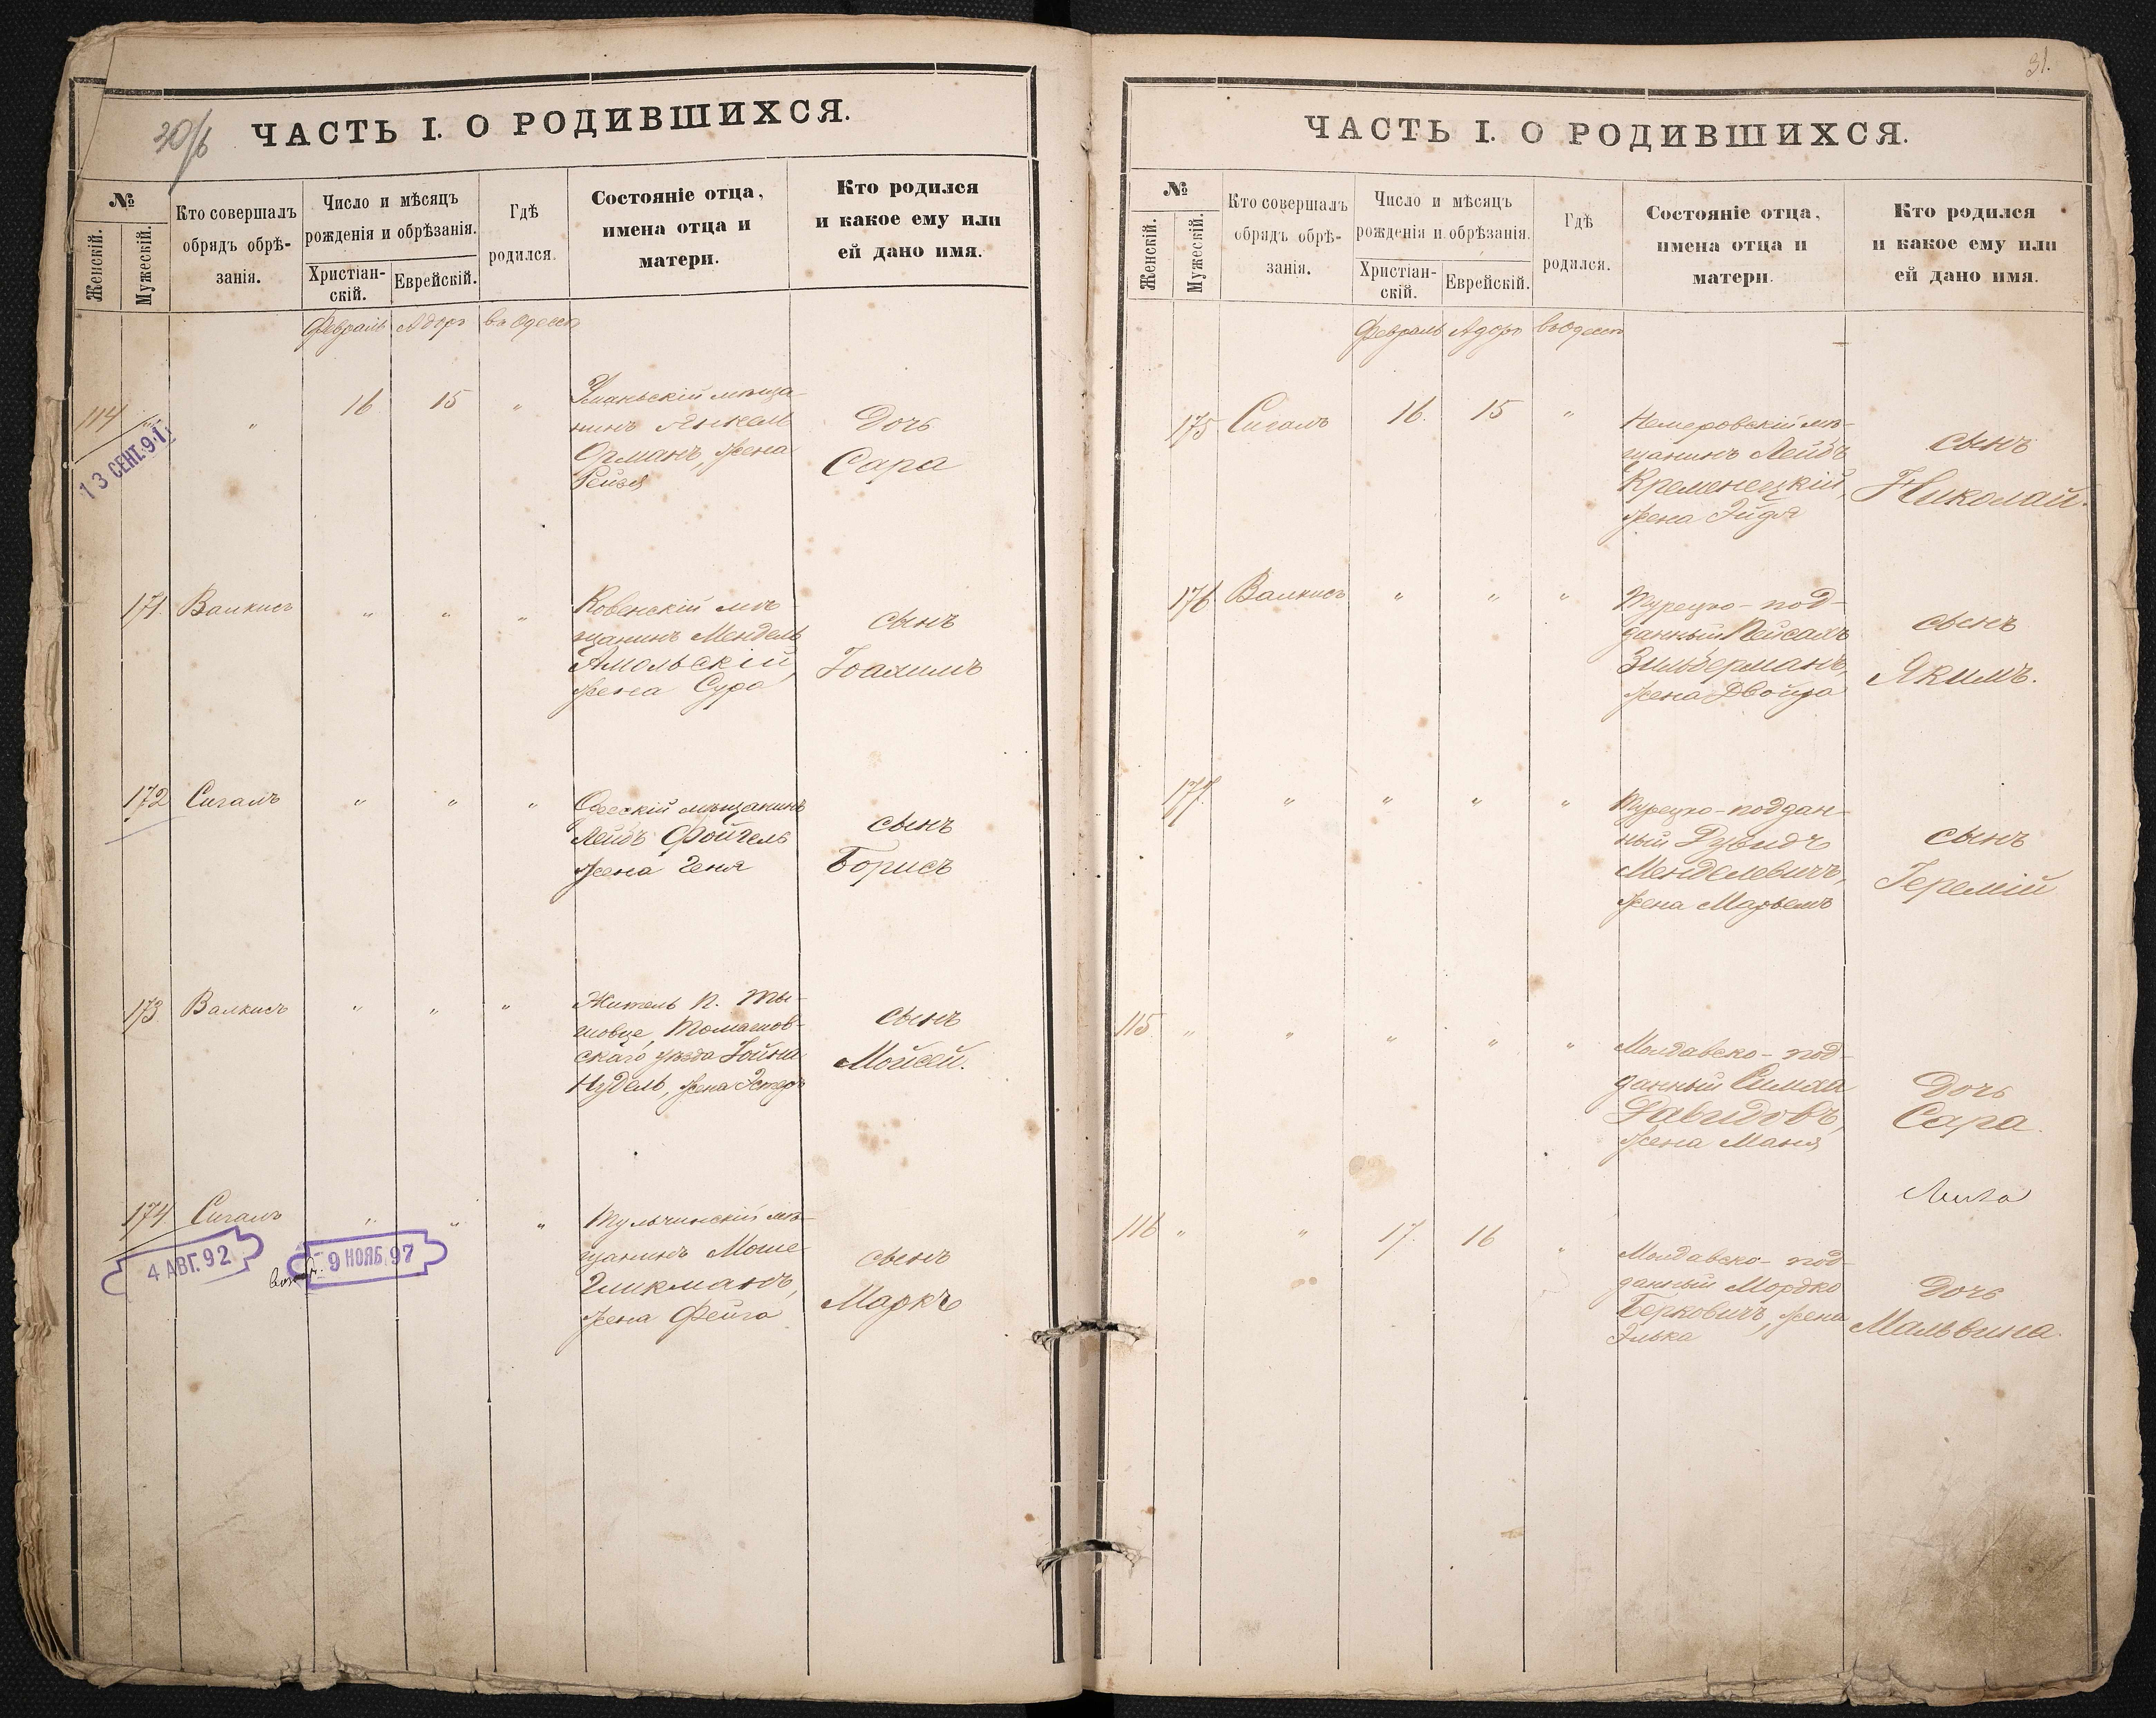 30/6
ЧАСТЬ I. О РОДИВШИХСЯ.
№
Женскій.
Мужескій.
Кто совершалъ
обрядъ обрѣ-
занія.
Число и мѣсяцъ
рожденія и обрѣзанія.
Христіан-
скій.
Еврейскій.
Гдѣ
родился.
Состояніе отца,
имена отца и
матери.
Кто родился
и какое ему или
ей дано имя.
Февраль Адоръ въ Одессѣ
114 " " 16 15 "
13 СЕНТ.91.
Уманьскій мѣща-
нинъ Янкель
Орманъ, жена
Рейзя
Дочь
Сара
171. Валкисъ " " "
Ковенскій мѣ-
щанинъ Мендель
Амольскій,
жена Сура
сынъ
Іоахимъ
172 Сигалъ " " "
Одесскій мѣщанинъ
Лейбъ Фойгель
жена Геня
сынъ
Борисъ
173. Валкисъ " " "
Житель п. Ты-
шовце, Томашов-
скаго уѣзда Іойна
Нудель, жена Эстеръ
сынъ
Мойсей.
174. Сигалъ " " "
4 АВГ. 92
9 НОЯБ. 97
Тульчинскій мѣ-
щанинъ Моше
Гликманъ,
жена Фейга
сынъ
Маркъ
31.
ЧАСТЬ I. О РОДИВШИХСЯ.
№
Женскій.
Мужескій.
Кто совершалъ
обрядъ обрѣ-
занія.
Число и мѣсяцъ
рожденія и обрѣзанія.
Христіан-
скій.
Еврейскій.
Гдѣ
родился.
Состояніе отца,
имена отца и
матери.
Кто родился
и какое ему или
ей дано имя.
Февраль Адоръ въ Одессѣ
175 Сигалъ 16. 15 "
Немеровскій мѣ-
щанинъ Лейбъ
Кременецкій,
жена Эйдля
сынъ
Николай.
176 Валкисъ " " "
Турецко-под-
данный Пейсахъ
Зильберманъ,
жена Двойра
сынъ
Якимъ.
177. " " " "
Турецко-поддан-
ный Дувидъ
Менделевичъ,
жена Марьемъ
сынъ
Іеремій
115 " " " " "
Молдавско-под-
данный Симха
Давидовъ,
жена Маня
Дочь
Сара.
116 " " 17. 16 "
Молдавско-под-
данный Мордко
Берковичъ, жена
Элька
Дочь
Мальвина.